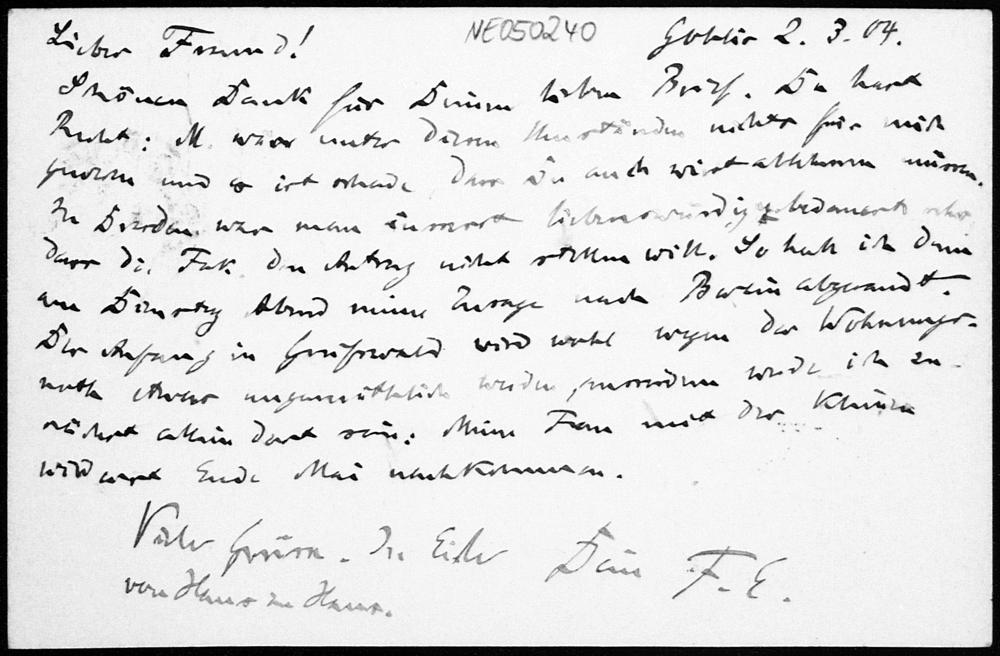 NE050240
Lieber Freund! 2. 3. 04.
Schönen Dank für Deinen lieben Brief. Du hast
Recht: M. wäre unter diesen Umständen nichts für mich
gewesen und es ist schade, dass Du auch wirst ablehnen müssen.
In Dresden war man äusserst liebenswürdig bedauerte sehr
dass die Fak. den Antrag nicht stellen will. So hab ich denn
am Dienstag Abend meine Zusage nach Berlin abgesandt.
Der Anfang in Greifswald wird wohl wegen der Wohnungs-
noth etwas ungemüthlich werden, ausserdem werde ich zu-
nächst allein dort sein: Meine Frau mit der Kleinen
wird erst Ende Mai nachkommen.
Viele Grüsse. In Eile Dein F. E.
von Haus zu Haus.